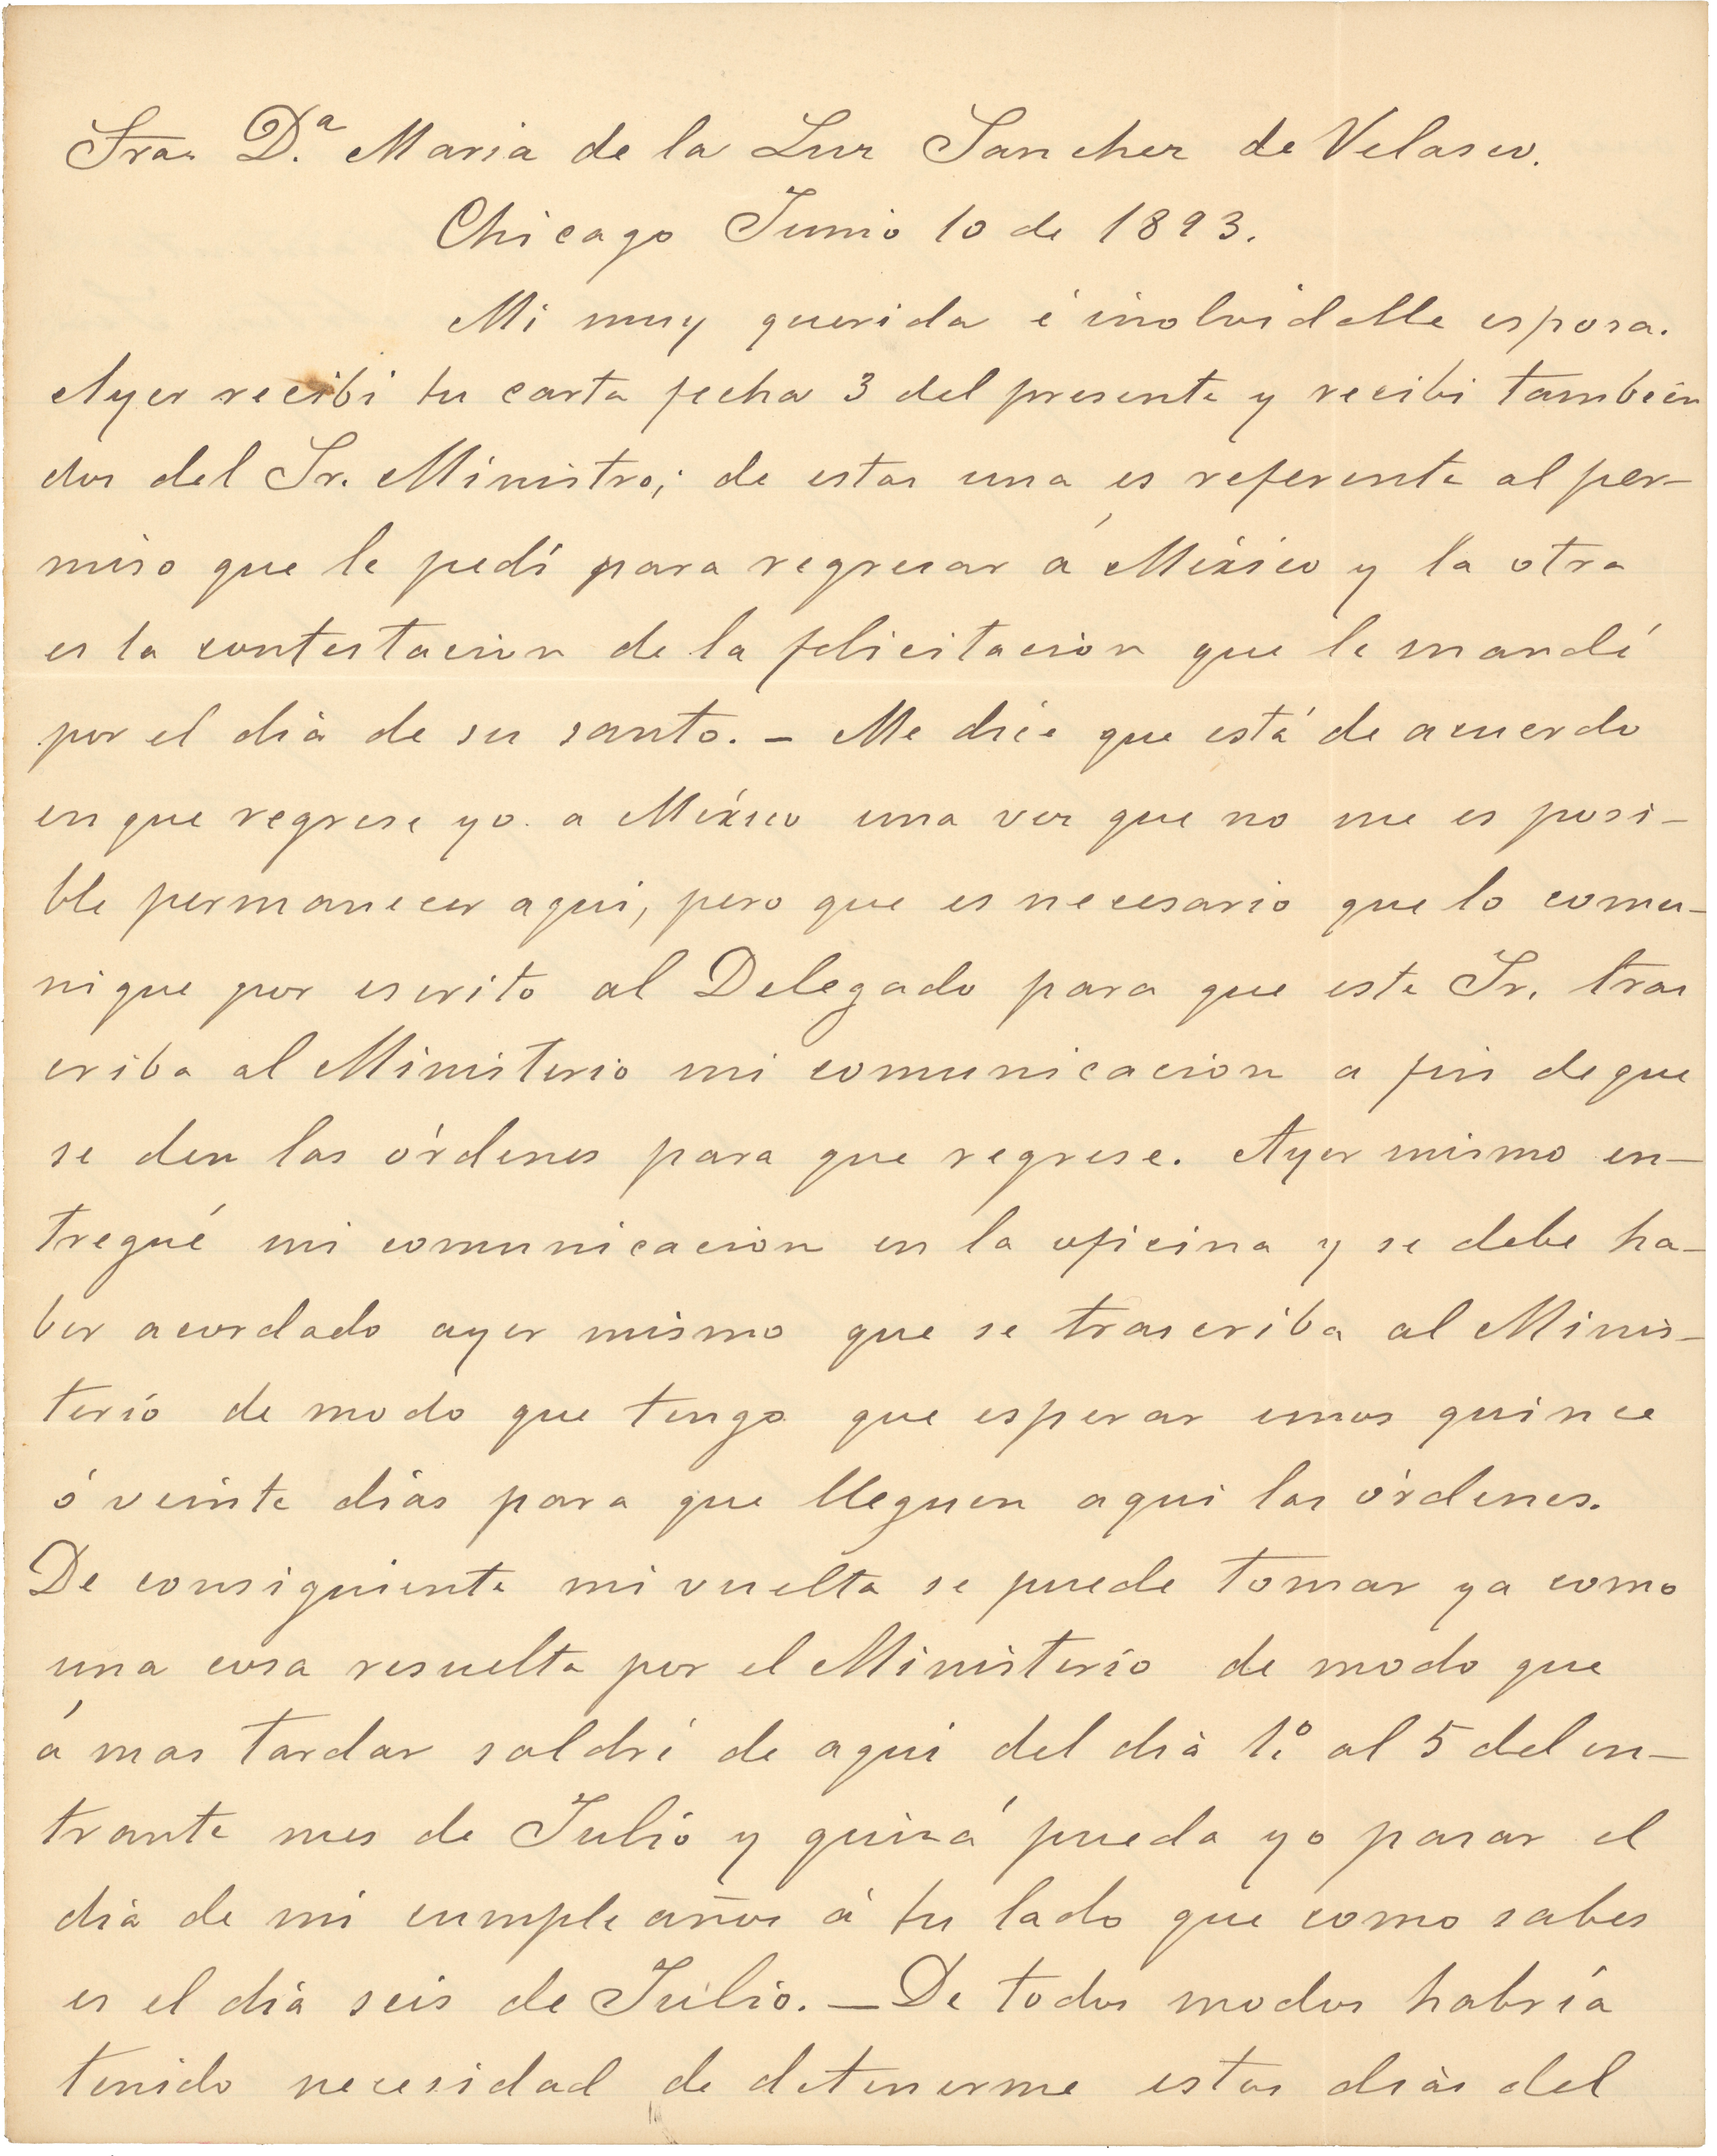 Sra. D.ª Maria de la Luz Sanchez de Velasco.
Chicago Junio 10 de 1893.
Mi muy querida é inolvidable esposa.
Ayer recibi tu carta fecha 3 del presente y recibi tambien
dos del Sr. Ministro; de estas una es referente al per-
miso que le pedí para regresar á México y la otra
es la contestacion de la felicitacion que le mandé
por el dia de su santo. - Me dice que está de acuerdo
en que regrese yo a México una vez que no me es posi-
ble permanecer aqui, pero que es necesario que lo comu-
nique por escrito al Delegado para que este Sr. tras
criba al Ministerio mi comunicacion a fin de que
se den las órdenes para que regrese. Ayer mismo en-
tregué mi comunicacion en la oficina y se debe ha-
ber acordado ayer mismo que se trascriba al Minis-
terio de modo que tengo que esperar unos quince
ó veinte dias para que lleguen aqui las órdenes.
De consiguiente mi vuelta se puede tomar ya como
una cosa resuelta por el Ministerio de modo que
á mas tardar saldré de aqui del dia 1.º al 5 del en-
trante mes de Julio y quizá pueda yo pasar el
dia de mi cumpleaños á tu lado que como sabes
es el dia seis de Julio. - De todos modos habría
tenido necesidad de detenerme estos dias del